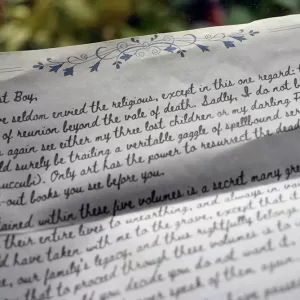 st Boy,
ve seldom envied the religious, except in this one regard: t
of reunion beyond the vale of death. Sadly, I do not b
again see either my three lost children or my darling F
ld surely be trailing a veritable gaggle of spellbound ser
succubi). Only art has the power to resurrect the dead
-out books you see before you.
tained within these five volumes is a secret many gre
their entire lives to unearthing, and always in va
ld have taken with me to the grave, except that it
our family's legacy, and thus rightfully belongs
that to proceed through these volumes is to
ld you decide you do not want it,
speak of them again